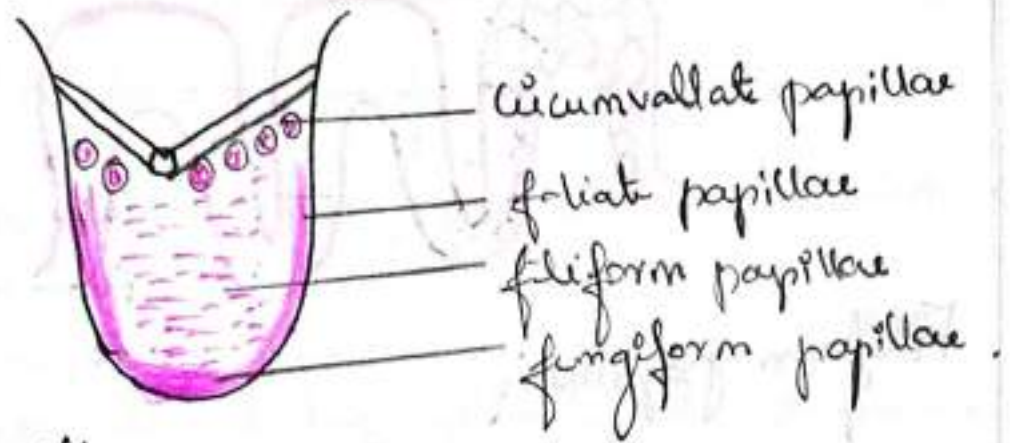 circumvallate papillae
foliate papillae
filiform papillae
fungiform papillae.